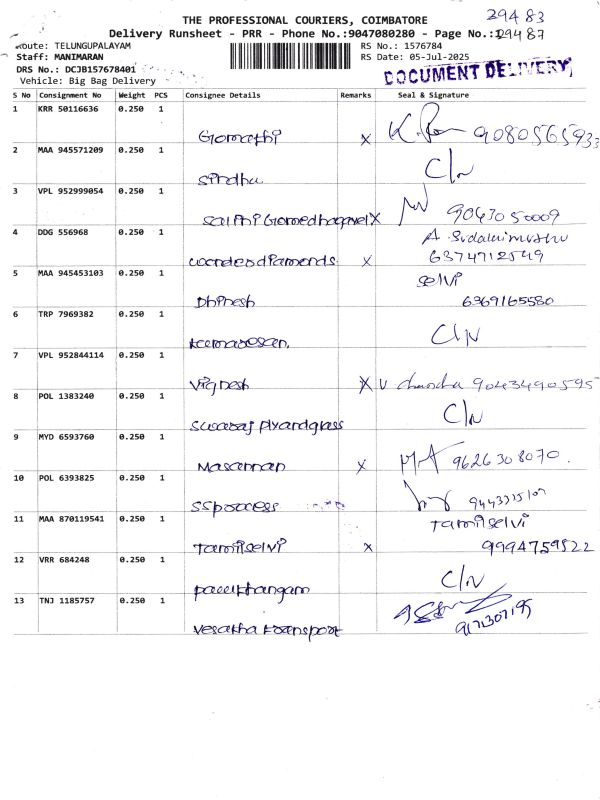 THE PROFESSIONAL COURIERS, COIMBATORE
29483
Delivery Runsheet - PRR - Phone No.:9047080280 - Page No.:1
29487
Route: TELUNGUPALAYAM
RS No.: 1576784
Staff: MANIMARAN
RS Date: 05-Jul-2025
DRS No.: DCJB157678401
DOCUMENT DELIVERY
Vehicle: Big Bag Delivery
S No Consignment No Weight PCS Consignee Details Remarks Seal & Signature
1 KRR 50116636 0.250 1
Gomathi X 9080565933
2 MAA 945571209 0.250 1 C/N
Sindhu
3 VPL 952999054 0.250 1
X 9043050009
4 DDG 556968 0.250 1 A. Sudalaimuthu
wonderdiamonds X 6374712549
5 MAA 945453103 0.250 1 Selvi
Dhinesh 6369165580
6 TRP 7969382 0.250 1 C/N
kumaresan.
7 VPL 952844114 0.250 1
Vignesh X V chandra 9043490595
8 POL 1383240 0.250 1 C/N
Suvaraj plyandglass
9 MYD 6593760 0.250 1
Masannan X 9626308070.
10 POL 6393825 0.250 1
SSprocess
11 MAA 870119541 0.250 1 Tamilselvi
Tamilselvi X 9994759522
12 VRR 684248 0.250 1 C/N
13 TNJ 1185757 0.250 1
transport 9171307195